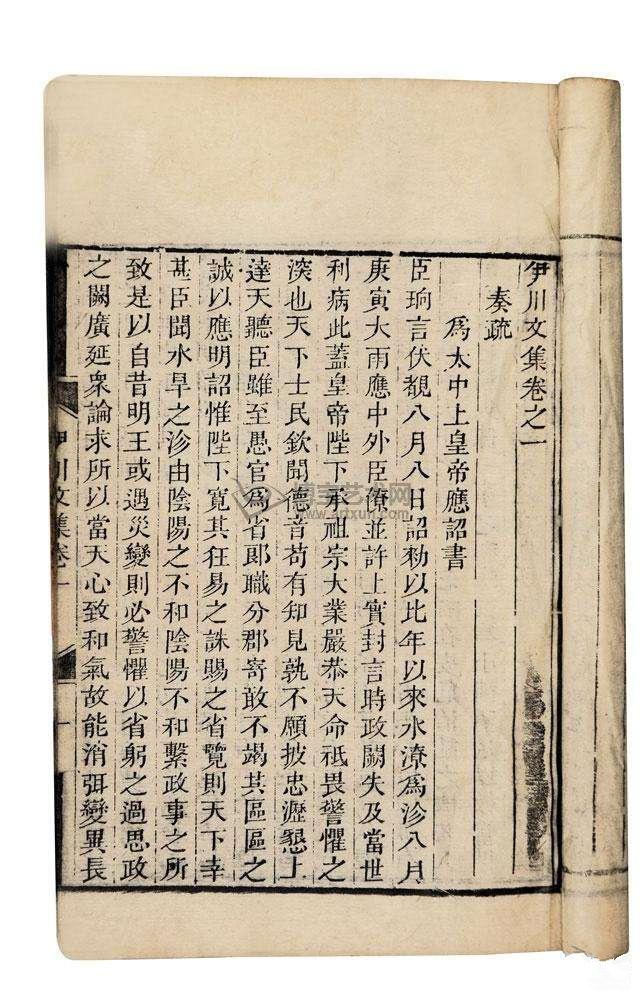 伊川文集卷之一
奏疏
爲太中上皇帝應詔書
臣珦言伏覩八月八日詔勑以比年以來水潦爲沴八月
庚寅大雨應中外臣僚並許上實封言時政闕失及當世
利病此蓋皇帝陛下承祖宗大業嚴恭天命祗畏警懼之
深也天下士民欽聞德音苟有知見孰不願披忠瀝懇上
達天聽臣雖至愚官爲省郞職分郡寄敢不竭其區區之
誠以應明詔惟陛下寬其狂易之誅賜之省覽則天下幸
甚臣聞水旱之沴由陰陽之不和陰陽不和繫政事之所
致是以自昔明王或遇災變則必警懼以省躬之過思政
之闕廣延衆論求所以當天心致和氣故能消弭變異長
伊川文集卷一
一
博宝艺术网
www.artxun.com